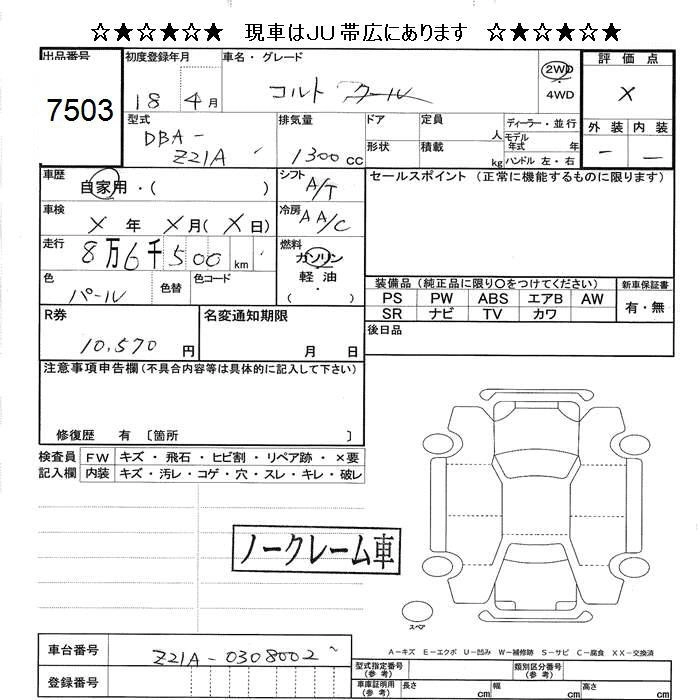 ☆★☆★☆★ 現車はJU帯広にあります ☆★☆★☆★
出品番号
7503
初度登録年月
18 4月
車名・グレード
コルト クール
2WD
4WD
評価点
X
外装 内装
— —
型式
DBA-
Z21A
排気量
1300 CC
ドア
形状
定員
人
積載
kg
ディーラー・並行
モデル
年式 年
ハンドル 左・右
車歴
自家用・( )
シフト
A/T
セールスポイント (正常に機能するものに限ります)
車検
X 年 X月(X日)
冷房
AA/C
走行
8万6千500 km
燃料
ガソリン
軽油
( )
色
パール
色替
色コード
装備品(純正品に限り○をつけてください)
PS PW ABS エアB AW
SR ナビ TV カワ
新車保証書
有・無
R券
10,570 円
名変通知期限
月 日
後日品
注意事項申告欄(不具合内容等は具体的に記入して下さい)
修復歴 有 〔箇所 〕
検査員
記入欄
FW キズ・飛石・ヒビ割・リペア跡・×要
内装 キズ・汚レ・コゲ・穴・スレ・キレ・破レ
ノークレーム車
スペア
A-キズ E-エクボ U-凹み W-補修跡 S-サビ C-腐食 XX-交換済
車台番号
Z21A-0308002
登録番号
型式指定番号
(参考)
類別区分番号
(参考)
車庫証明用
(参考)
長さ cm
幅 cm
高さ cm